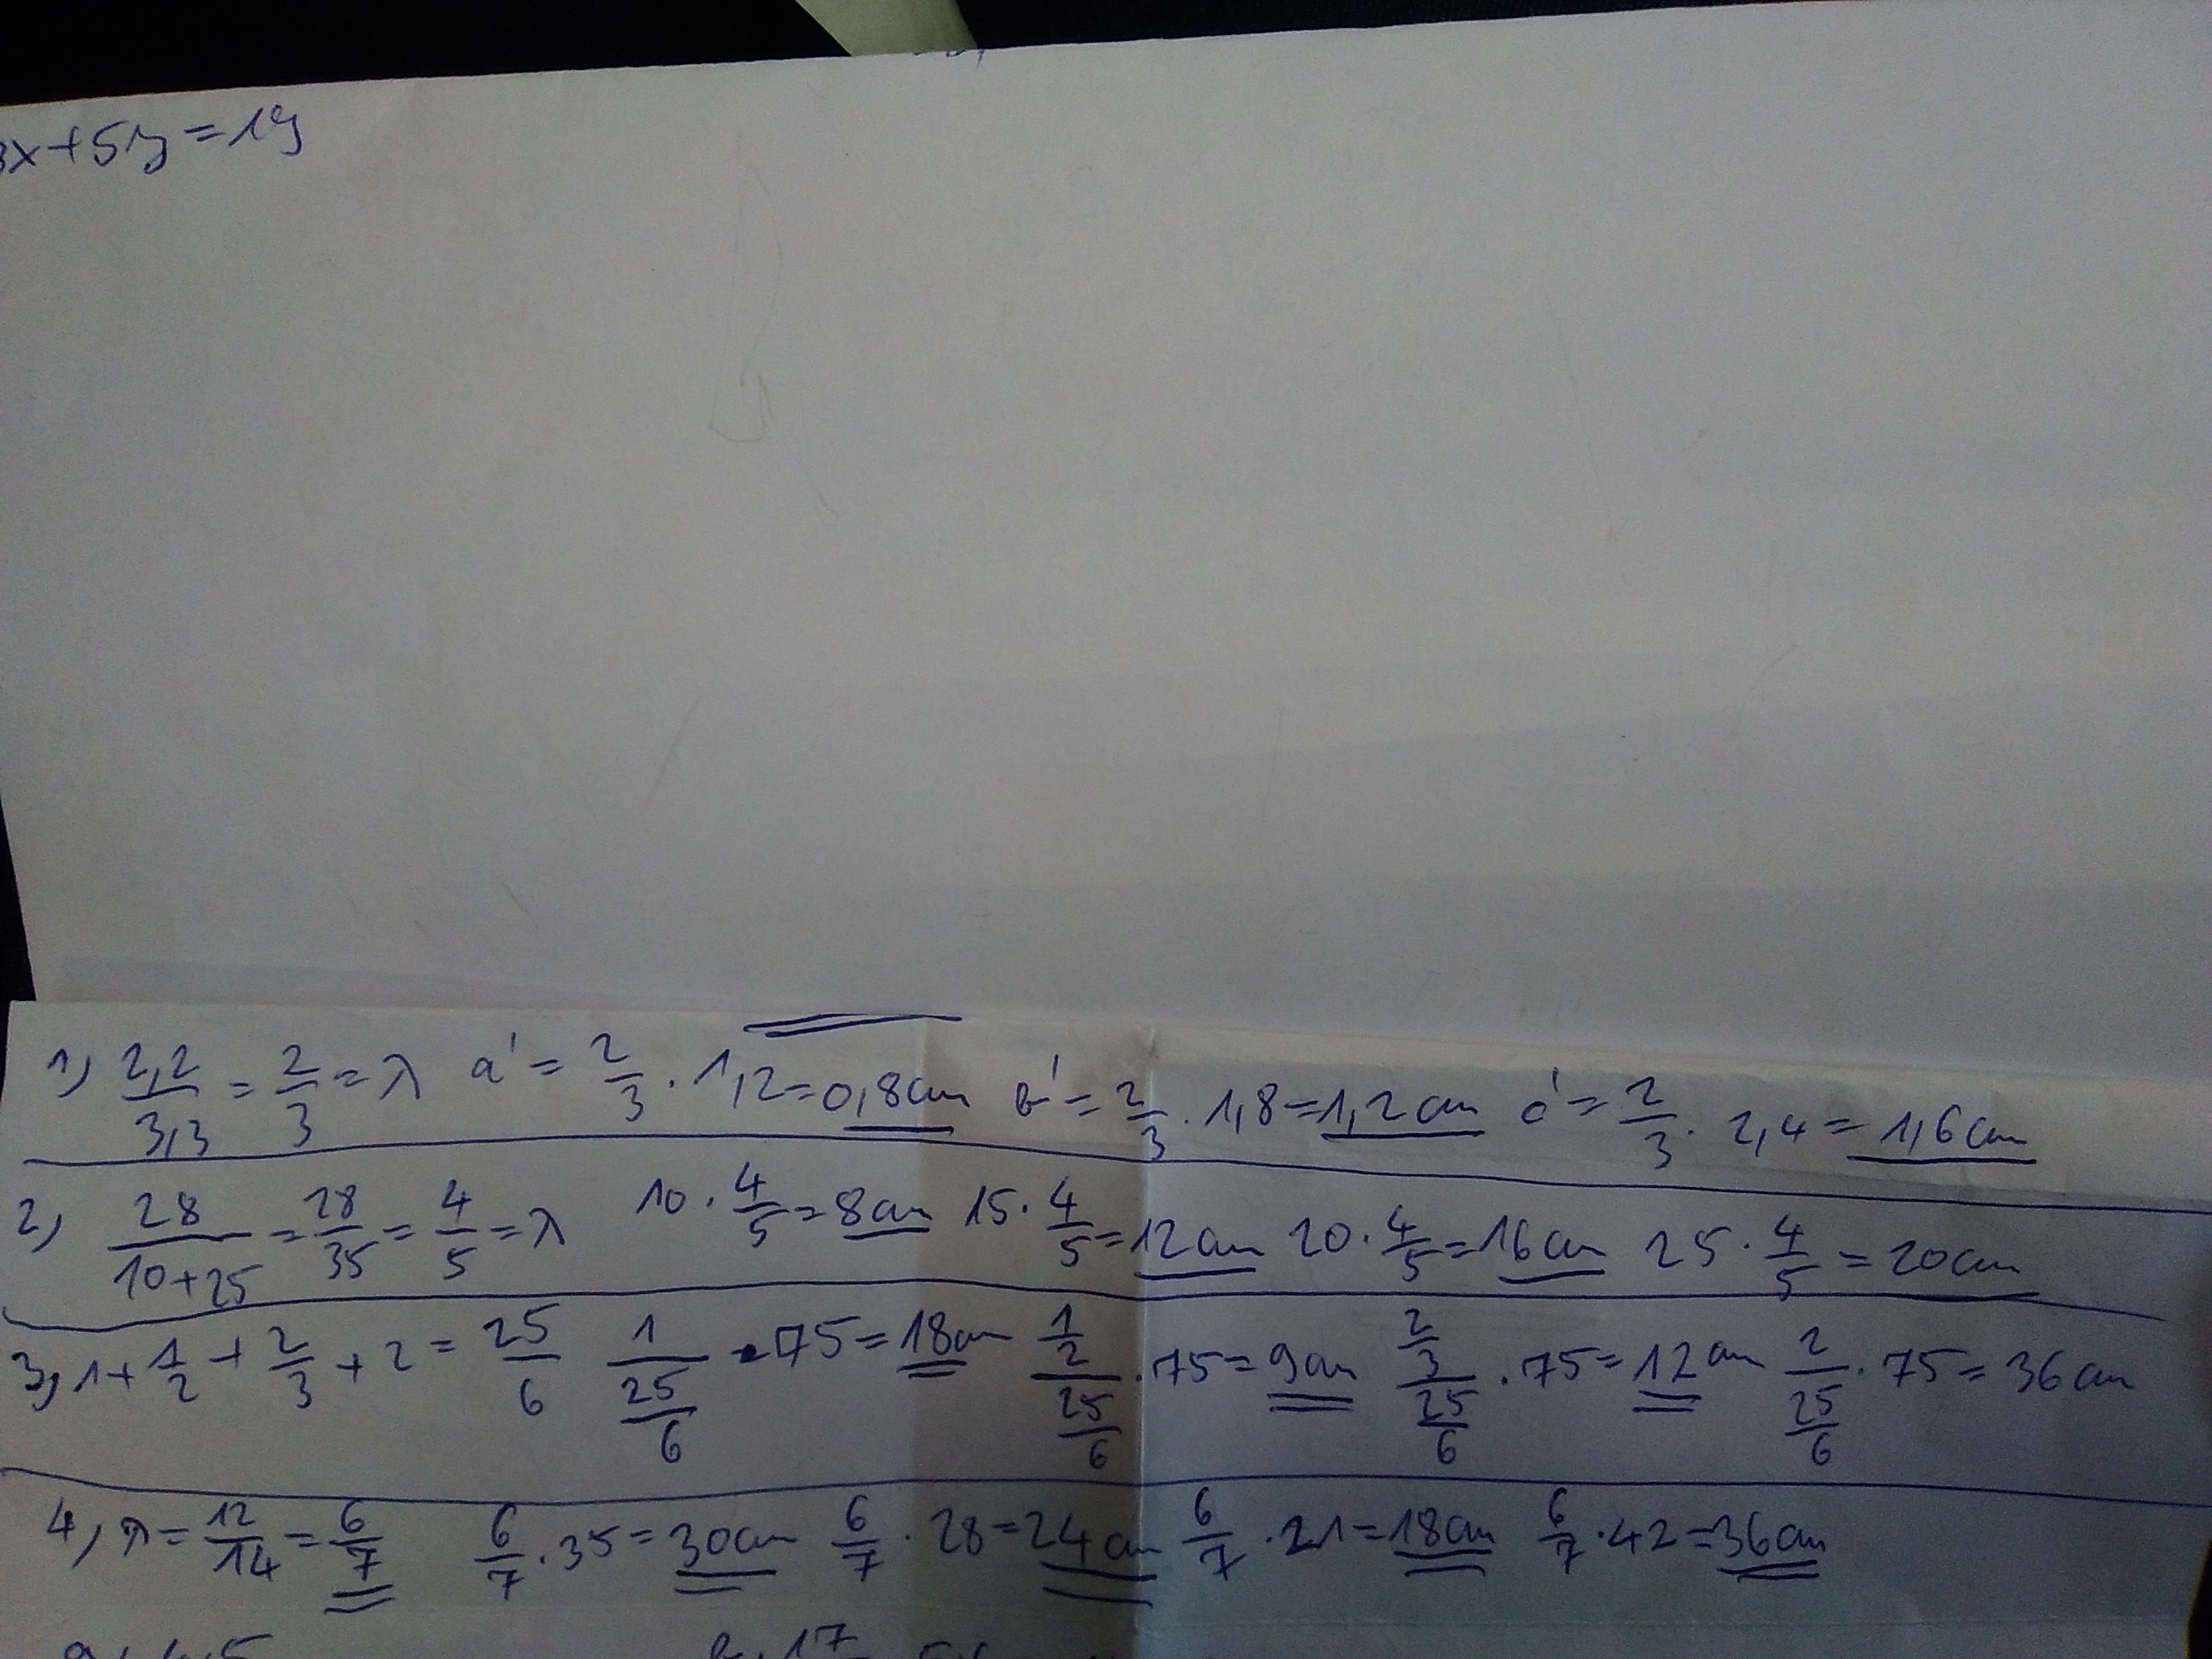 3x+5y=19
1, 2,2/3,3 = 2/3 = λ a' = 2/3 · 1,2 = 0,8cm b' = 2/3 · 1,8 = 1,2cm c' = 2/3 · 2,4 = 1,6cm
2, 28/10+25 = 28/35 = 4/5 = λ 10 · 4/5 = 8cm 15 · 4/5 = 12cm 20 · 4/5 = 16cm 25 · 4/5 = 20cm
3, 1 + 1/2 + 2/3 + 2 = 25/6 1/(25/6) · 75 = 18cm (1/2)/(25/6) · 75 = 9cm (2/3)/(25/6) · 75 = 12cm 2/(25/6) · 75 = 36cm
4, λ = 12/14 = 6/7 6/7 · 35 = 30cm 6/7 · 28 = 24cm 6/7 · 21 = 18cm 6/7 · 42 = 36cm